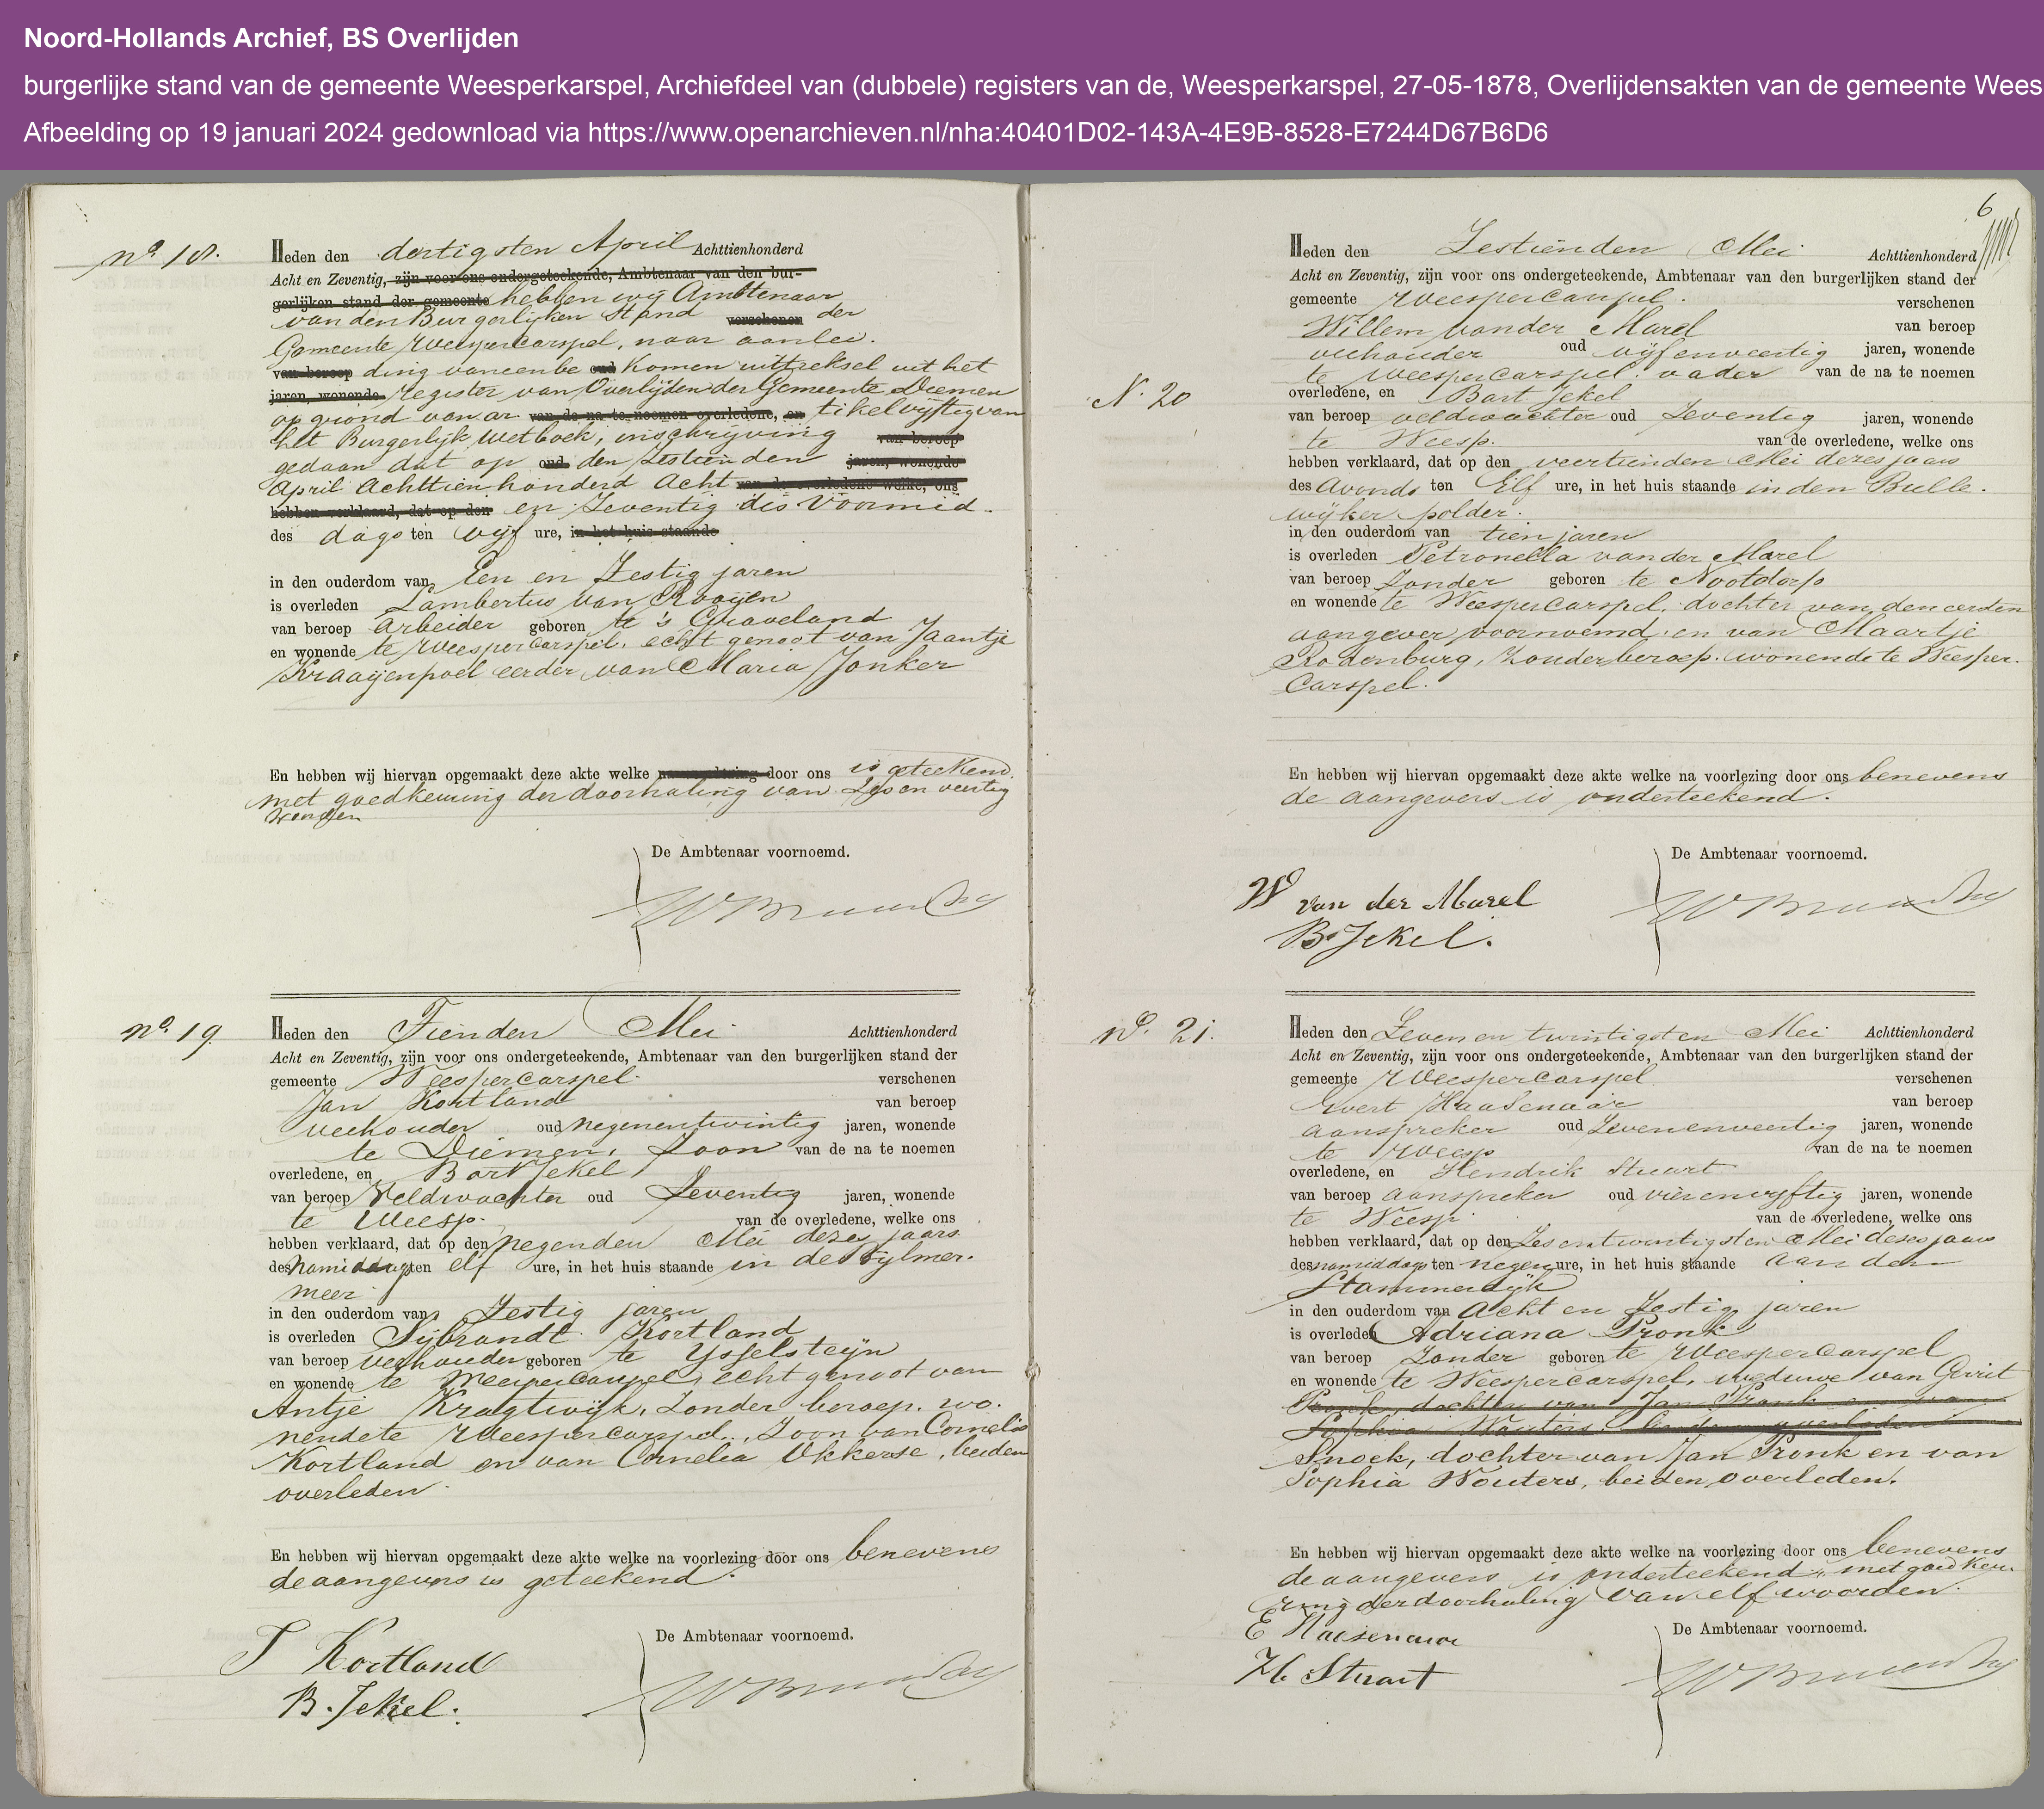 Noord-Hollands Archief, BS Overlijden
burgerlijke stand van de gemeente Weesperkarspel, Archiefdeel van (dubbele) registers van de, Weesperkarspel, 27-05-1878, Overlijdensakten van de gemeente Wees
Afbeelding op 19 januari 2024 gedownload via https://www.openarchieven.nl/nha:40401D02-143A-4E9B-8528-E7244D67B6D6
No 18.
Heden den dertigsten April Achttienhonderd
Acht en Zeventig, zijn voor ons ondergeteekende, Ambtenaar van den bur-
gerlijken stand der gemeente hebben wij Ambtenaar
van den Burgerlijken Stand verschenen der
Gemeente Weespercarspel, naar aanlei.
van beroep ding van een be oud komen uittreksel uit het
jaren, wonende register van Overlijden der Gemeente Diemen
op grond van ar van de na te noemen overledene, en tikel vijftig van
het Burgerlijk Wetboek, inschrijving van beroep
gedaan dat op oud den Zestienden jaren, wonende
April Achttien honderd Acht van de overledene welke, ons
hebben verklaard, dat op den en Zeventig des Voormid.
des dags ten vijf ure, in het huis staande
in den ouderdom van Een en Zestig jaren
is overleden Lambertus van Rooijen
van beroep arbeider geboren te 's Graveland
en wonende te Weespercarspel, echtgenoot van Jaantje
Kraaijenpoel eerder van Maria Jonker
En hebben wij hiervan opgemaakt deze akte welke na voorlezing door ons is geteekend.
met goedkeuring der doorhaling van Zes en veertig
woorden
De Ambtenaar voornoemd.
No 19
Heden den Tienden Mei Achttienhonderd
Acht en Zeventig, zijn voor ons ondergeteekende, Ambtenaar van den burgerlijken stand der
gemeente Weespercarspel. verschenen
Jan Kortland van beroep
veehouder oud negenentwintig jaren, wonende
te Diemen, Zoon van de na te noemen
overledene, en Bart Jekel
van beroep Veldwachter oud Zeventig jaren, wonende
te Weesp. van de overledene, welke ons
hebben verklaard, dat op den negenden Mei dezes jaars
des Namiddags ten elf ure, in het huis staande in de Bylmer.
meer
in den ouderdom van Zestig jaren
is overleden Sijbrandt Kortland
van beroep veehouder geboren te Ysselsteijn
en wonende te Weespercarspel, echtgenoot van
Antje Kragtwijk, Zonder beroep, wo.
nende te Weespercarspel, Zoon van Cornelis
Kortland en van Cornelia Ukkerse, beiden
overleden.
En hebben wij hiervan opgemaakt deze akte welke na voorlezing door ons benevens
de aangevers is geteekend.
De Ambtenaar voornoemd.
J Kortland
B. Jekel.
6
N. 20
Heden den Zestienden Mei Achttienhonderd
Acht en Zeventig, zijn voor ons ondergeteekende, Ambtenaar van den burgerlijken stand der
gemeente Weespercarspel. verschenen
Willem van der Marel van beroep
veehouder oud vijfenveertig jaren, wonende
te Weespercarspel. vader van de na te noemen
overledene, en Bart Jekel
van beroep veldwachter oud Zeventig jaren, wonende
te Weesp. van de overledene, welke ons
hebben verklaard, dat op den veertienden Mei dezes jaars
des Avonds ten Elf ure, in het huis staande in den Bulle.
wijker polder.
in den ouderdom van tien jaren
is overleden Petronella van der Marel
van beroep Zonder geboren te Nootdorp
en wonende te Weespercarspel, dochter van den eersten
aangever voornoemd en van Maartje
Rodenburg, Zonder beroep. wonende te Weesper.
Carspel.
En hebben wij hiervan opgemaakt deze akte welke na voorlezing door ons benevens
de aangevers is onderteekend.
De Ambtenaar voornoemd.
W van der Marel
B. Jekel.
No. 21.
Heden den Zeven en twintigsten Mei Achttienhonderd
Acht en Zeventig, zijn voor ons ondergeteekende, Ambtenaar van den burgerlijken stand der
gemeente Weespercarspel verschenen
Evert Haasenaar van beroep
aanspreker oud Zevenenveertig jaren, wonende
te Weesp van de na te noemen
overledene, en Hendrik Stuart
van beroep aanspreker oud vierenvyftig jaren, wonende
te Weesp. van de overledene, welke ons
hebben verklaard, dat op den Zesentwintigsten Mei dezes jaars
des namiddags ten negen ure, in het huis staande aan den
Stammerdijk
in den ouderdom van Acht en Zestig jaren
is overleden Adriana Pronk
van beroep Zonder geboren te Weespercarspel
en wonende te Weespercarspel, weduwe van Gerrit
Pronk, dochter van Jan Pronk en van
Sophia Wouters, beiden overleden
Snoek, dochter van Jan Pronk en van
Sophia Wouters, beiden overleden.
En hebben wij hiervan opgemaakt deze akte welke na voorlezing door ons benevens
de aangevers is onderteekend, met goedkeu.
ring der doorhaling van elf woorden.
De Ambtenaar voornoemd.
E Haasenaar
H. Stuart